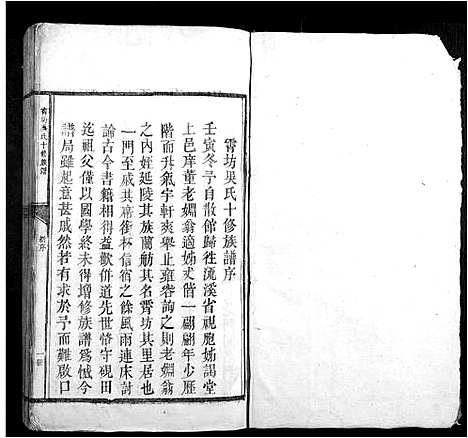 霄坊吳氏十修族譜序
壬寅冬予自散館歸往流溪省視胞姊謁堂
上邑庠董老姻翁適姊丈偕一翩翩年少歷
階而升氣宇軒爽舉止雍容詢之則老姻翁
之內姪延陵其族蘭舫其名霄坊其里居也
一門至戚其席銜杯信宿之餘風雨連床討
論古今書籍相得益歡併道先世恪守硯田
迄祖父僅以國學終未得增修族譜為憾今
譜局雖起意甚戚然若有求於予而難啟口
氏十修族譜
序
一